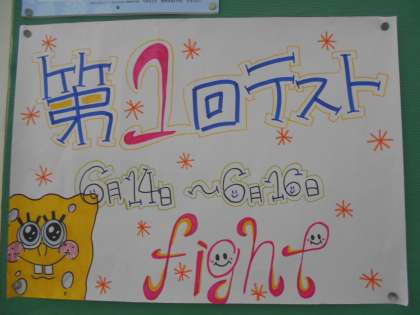 第1回テスト
6月14日 ～6月16日
fight